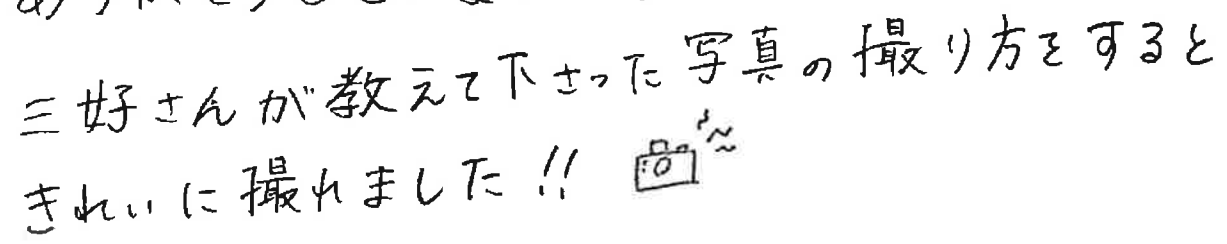 三好さんが教えて下さった写真の撮り方をすると
きれいに撮れました!!